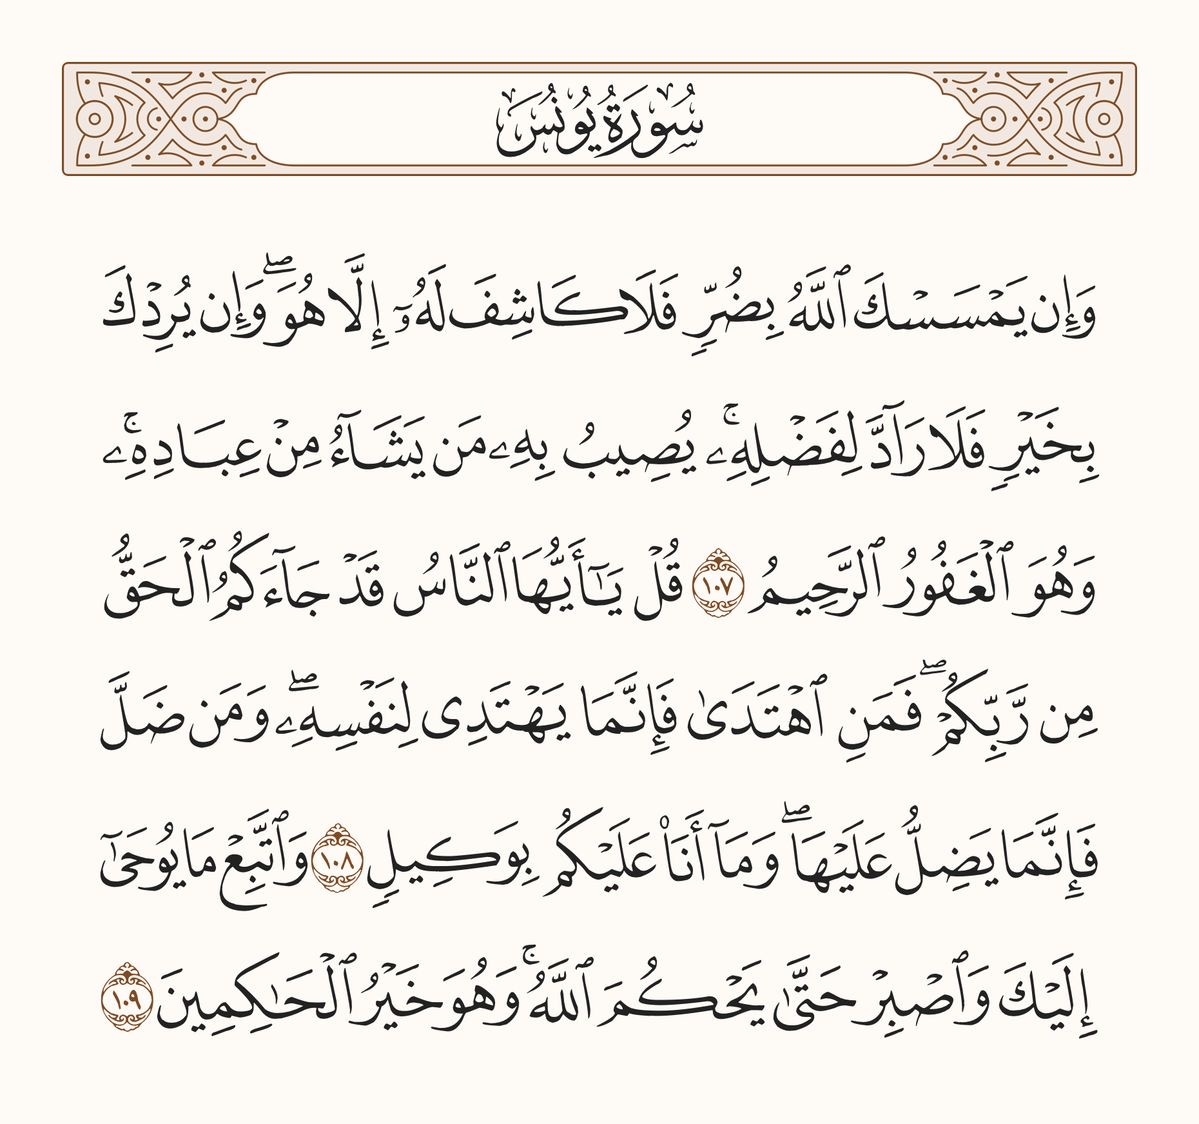 سُورَةُ يُونُسَ
وَإِن يَمْسَسْكَ ٱللَّهُ بِضُرٍّ فَلَا كَاشِفَ لَهُۥٓ إِلَّا هُوَ ۖ وَإِن يُرِدْكَ
بِخَيْرٍ فَلَا رَآدَّ لِفَضْلِهِۦ ۚ يُصِيبُ بِهِۦ مَن يَشَآءُ مِنْ عِبَادِهِۦ ۚ
وَهُوَ ٱلْغَفُورُ ٱلرَّحِيمُ ١٠٧ قُلْ يَـٰٓأَيُّهَا ٱلنَّاسُ قَدْ جَآءَكُمُ ٱلْحَقُّ
مِن رَّبِّكُمْ ۖ فَمَنِ ٱهْتَدَىٰ فَإِنَّمَا يَهْتَدِى لِنَفْسِهِۦ ۖ وَمَن ضَلَّ
فَإِنَّمَا يَضِلُّ عَلَيْهَا ۖ وَمَآ أَنَا۠ عَلَيْكُم بِوَكِيلٍ ١٠٨ وَٱتَّبِعْ مَا يُوحَىٰٓ
إِلَيْكَ وَٱصْبِرْ حَتَّىٰ يَحْكُمَ ٱللَّهُ ۚ وَهُوَ خَيْرُ ٱلْحَـٰكِمِينَ ١٠٩